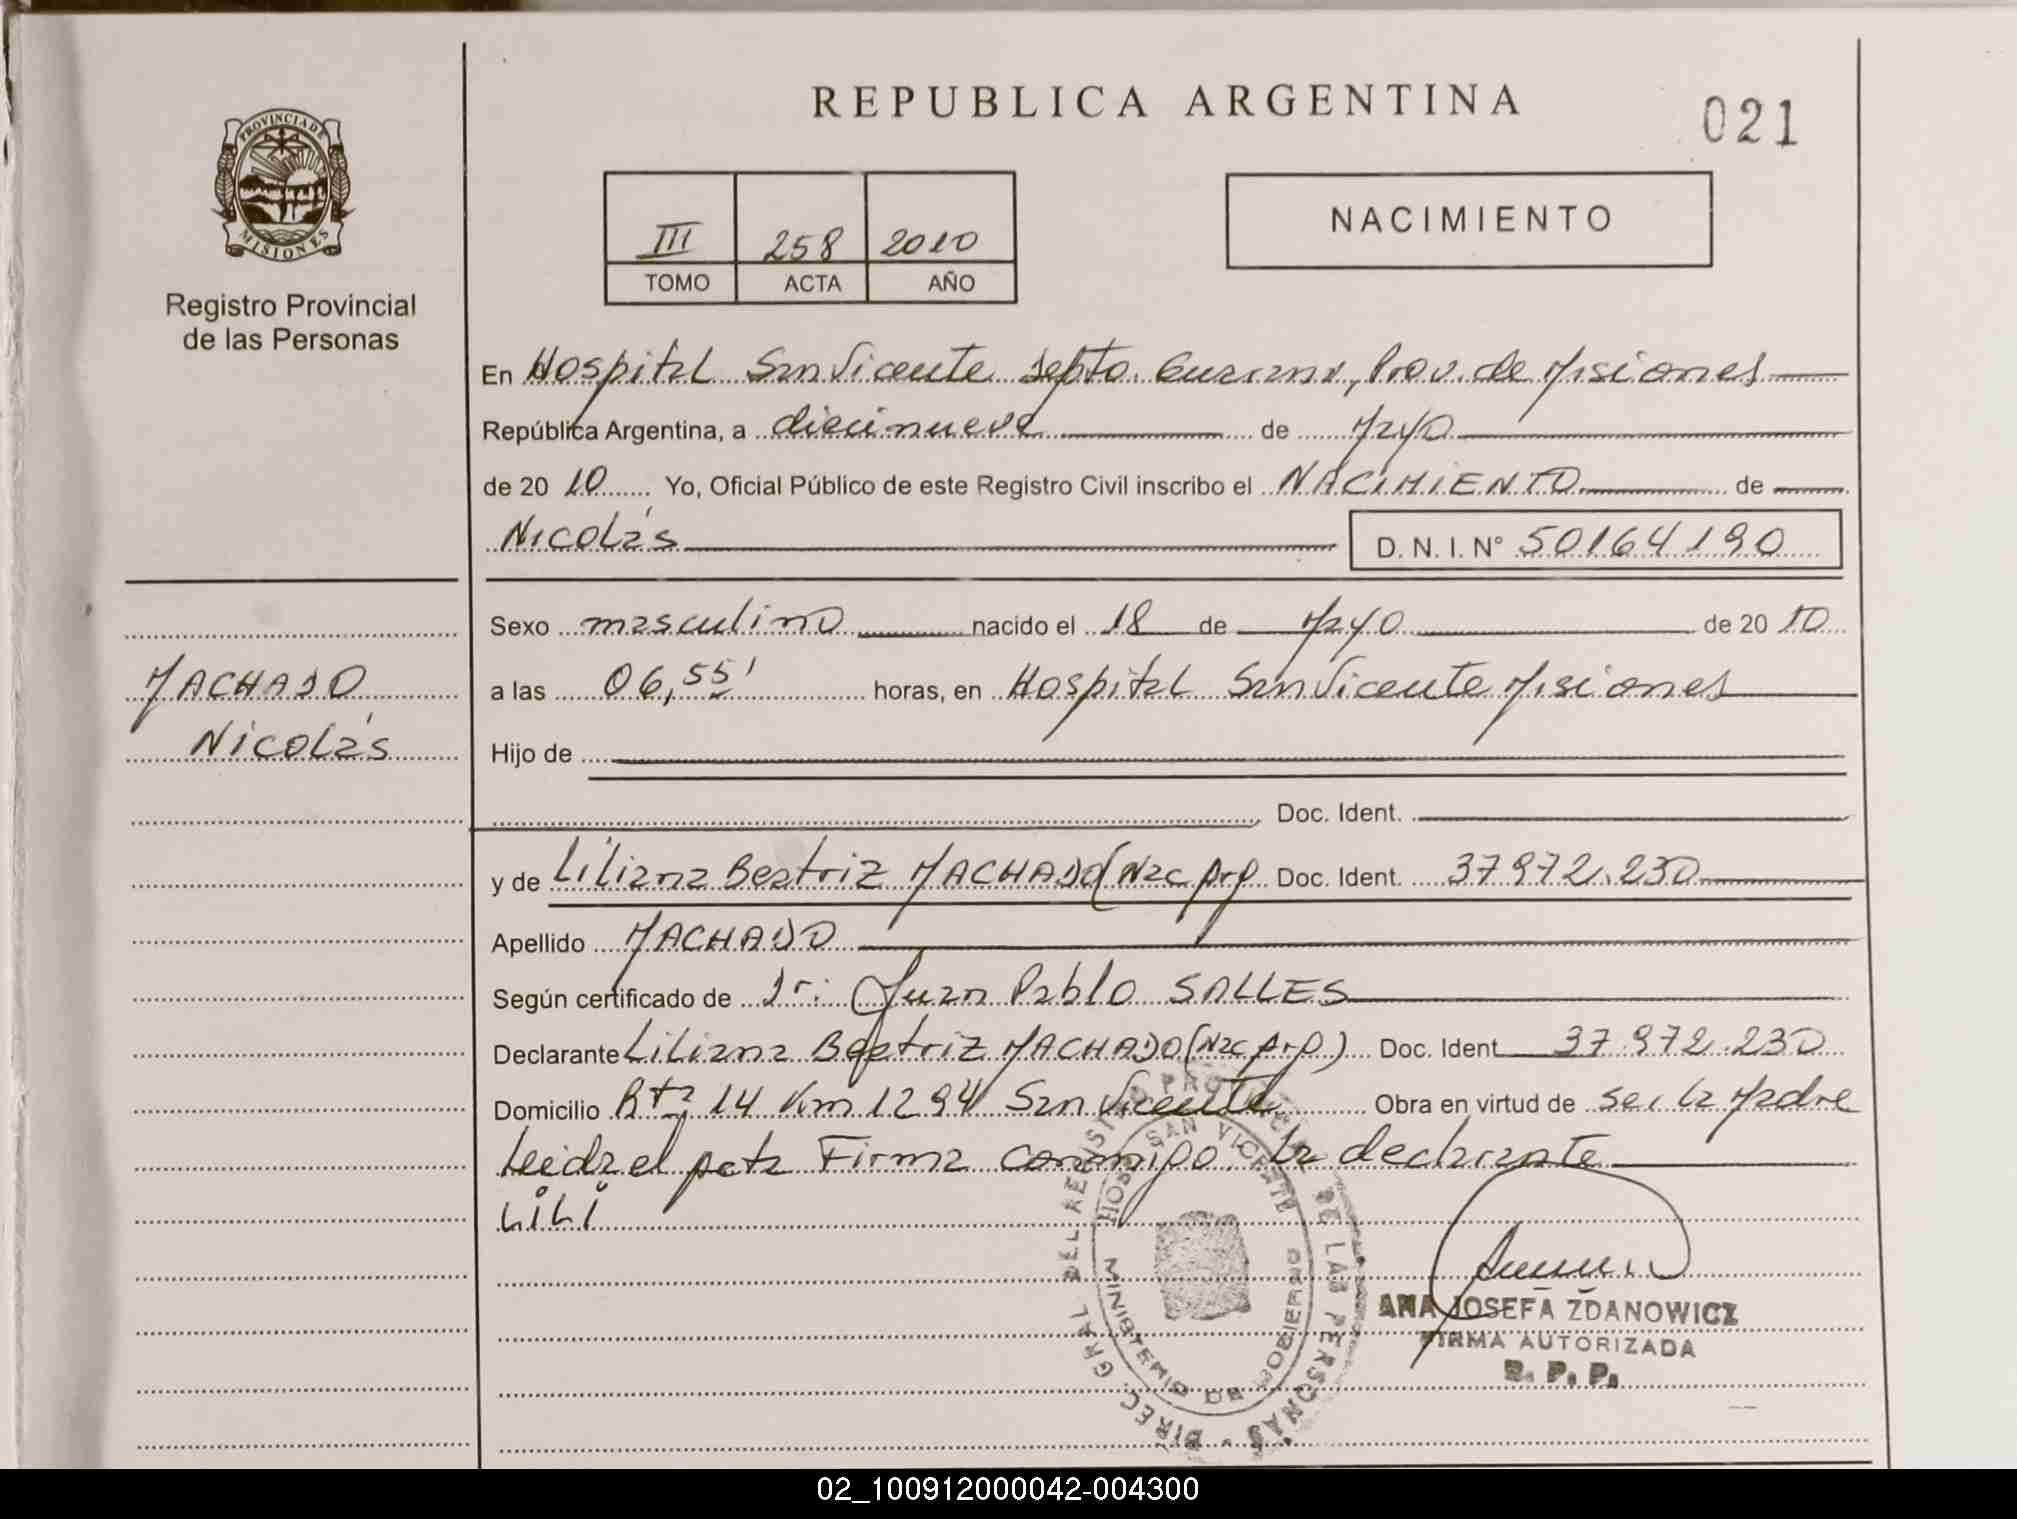 REPUBLICA ARGENTINA
021
PROVINCIA DE
MISIONES
Registro Provincial
de las Personas
III 258 2010
TOMO ACTA AÑO
NACIMIENTO
En Hospital San Vicente Depto. Guarani, Prov. de Misiones
República Argentina, a diecinueve de Mayo
de 2010 Yo, Oficial Público de este Registro Civil inscribo el NACIMIENTO de
Nicolás D. N. I. N° 50164190
Sexo masculino nacido el 18 de Mayo de 2010
MACHADO
a las 06,55' horas, en Hospital San Vicente Misiones
Nicolás
Hijo de
Doc. Ident.
y de Liliana Beatriz MACHADO (Nac Arg Doc. Ident. 37972.230
Apellido MACHADO
Según certificado de Dr: Juan Pablo SALLES
Declarante Liliana Beatriz MACHADO (Nac Arg) Doc. Ident 37 972.230
Domicilio Rta 14 Km 1294 San Vicente Obra en virtud de ser la Madre
Leida el acta Firma conmigo la declarante
LiLi
DIREC. GRAL DEL REGISTRO PROVINCIAL DE LAS PERSONAS
HOSP SAN VICENTE
MINISTERIO DE GOBIERNO
ANA JOSEFA ZDANOWICZ
FIRMA AUTORIZADA
R. P. P.
02_100912000042-004300